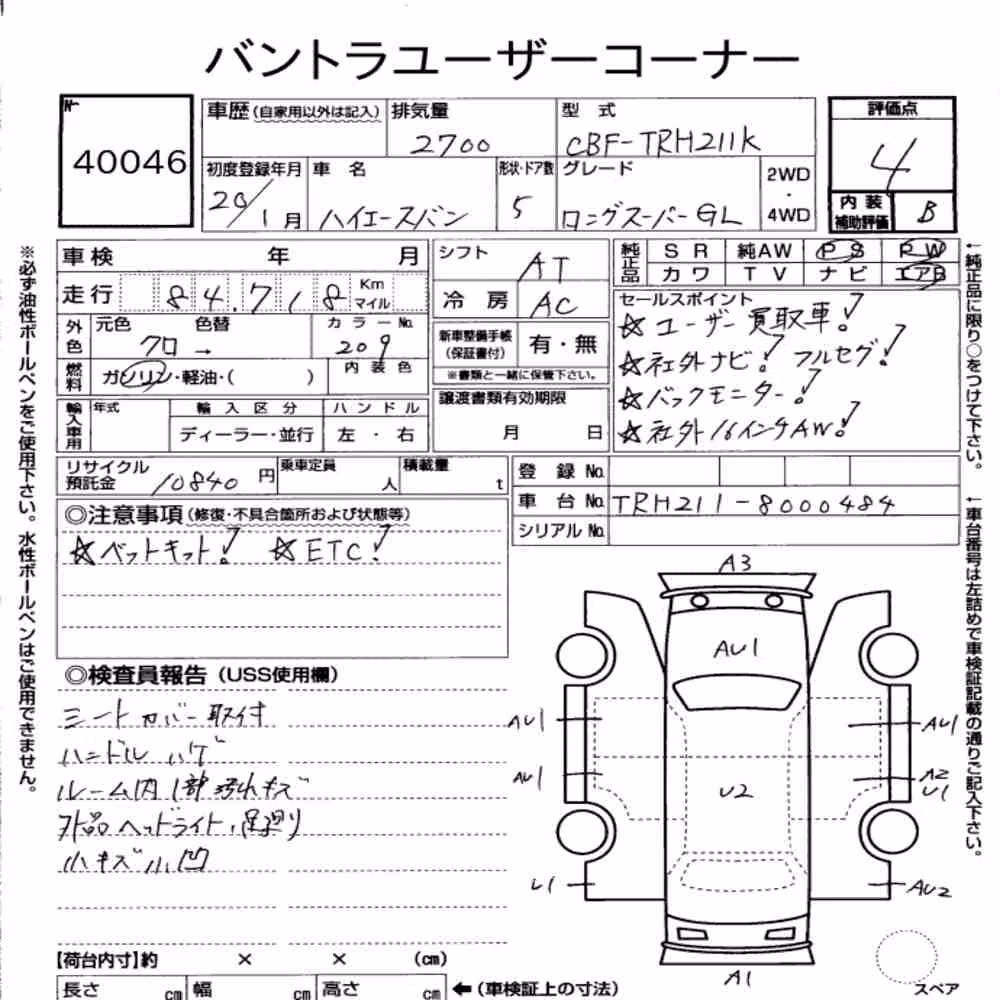 バントラユーザーコーナー
No. 40046
車歴(自家用以外は記入) 排気量 2700 型式 CBF-TRH211K
評価点 4
初度登録年月 20/1月 車名 ハイエースバン 形状・ドア数 5 グレード ロングスーパーGL 2WD・4WD
内装補助評価 B
車検 年 月 シフト AT
純正品 SR 純AW PS PW
カワ TV ナビ エアB
走行 84,718 Km マイル 冷房 AC
セールスポイント
☆ユーザー買取車!
☆社外ナビ! フルセグ!
☆バックモニター!
☆社外16インチAW!
外色 元色 クロ → 色替 カラーNo. 209
新車整備手帳(保証書付) 有・無
※書類と一緒に保管下さい。
燃料 ガソリン・軽油・( ) 内装色
譲渡書類有効期限 月 日
輸入車用 年式 輸入区分 ハンドル
ディーラー・並行 左・右
リサイクル預託金 10840円 乗車定員 人 積載量 t
登録No.
車台No. TRH211-8000484
シリアルNo.
◎注意事項(修復・不具合箇所および状態等)
☆ベットキット! ☆ETC!
◎検査員報告(USS使用欄)
シートカバー取付
ハンドルハゲ
ルーム内1部汚れキズ
外品ヘッドライト、足廻り
小キズ小凹
A3
AU1
AU1 AU1
AU1 A2 U1
U2
U1 AU2
A1
スペア
【荷台内寸】約 × × (cm)
長さ cm 幅 cm 高さ cm ←(車検証上の寸法)
※必ず油性ボールペンをご使用下さい。水性ボールペンはご使用できません。
←純正品に限り○をつけて下さい。
←車台番号は左詰めで車検証記載の通りご記入下さい。